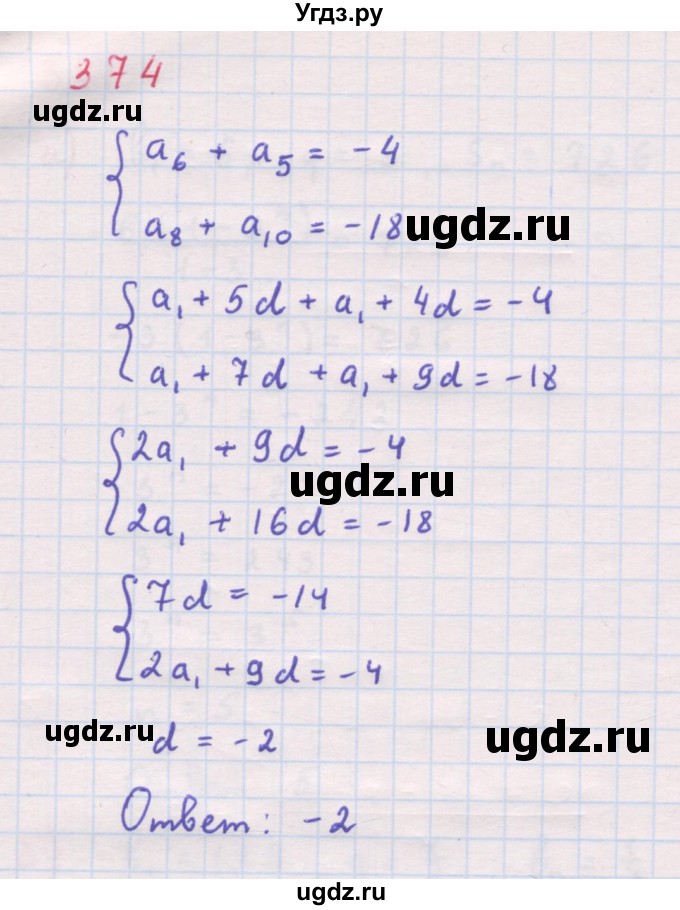 Угдз.ру
374
ugdz.ru
a₆ + a₅ = -4
a₈ + a₁₀ = -18
ugdz.ru
a₁ + 5d + a₁ + 4d = -4
a₁ + 7d + a₁ + 9d = -18
2a₁ + 9d = -4
ugdz.ru
2a₁ + 16d = -18
7d = -14
2a₁ + 9d = -4
ugdz.ru
d = -2
ugdz.ru
Ответ: -2
ugdz.ru